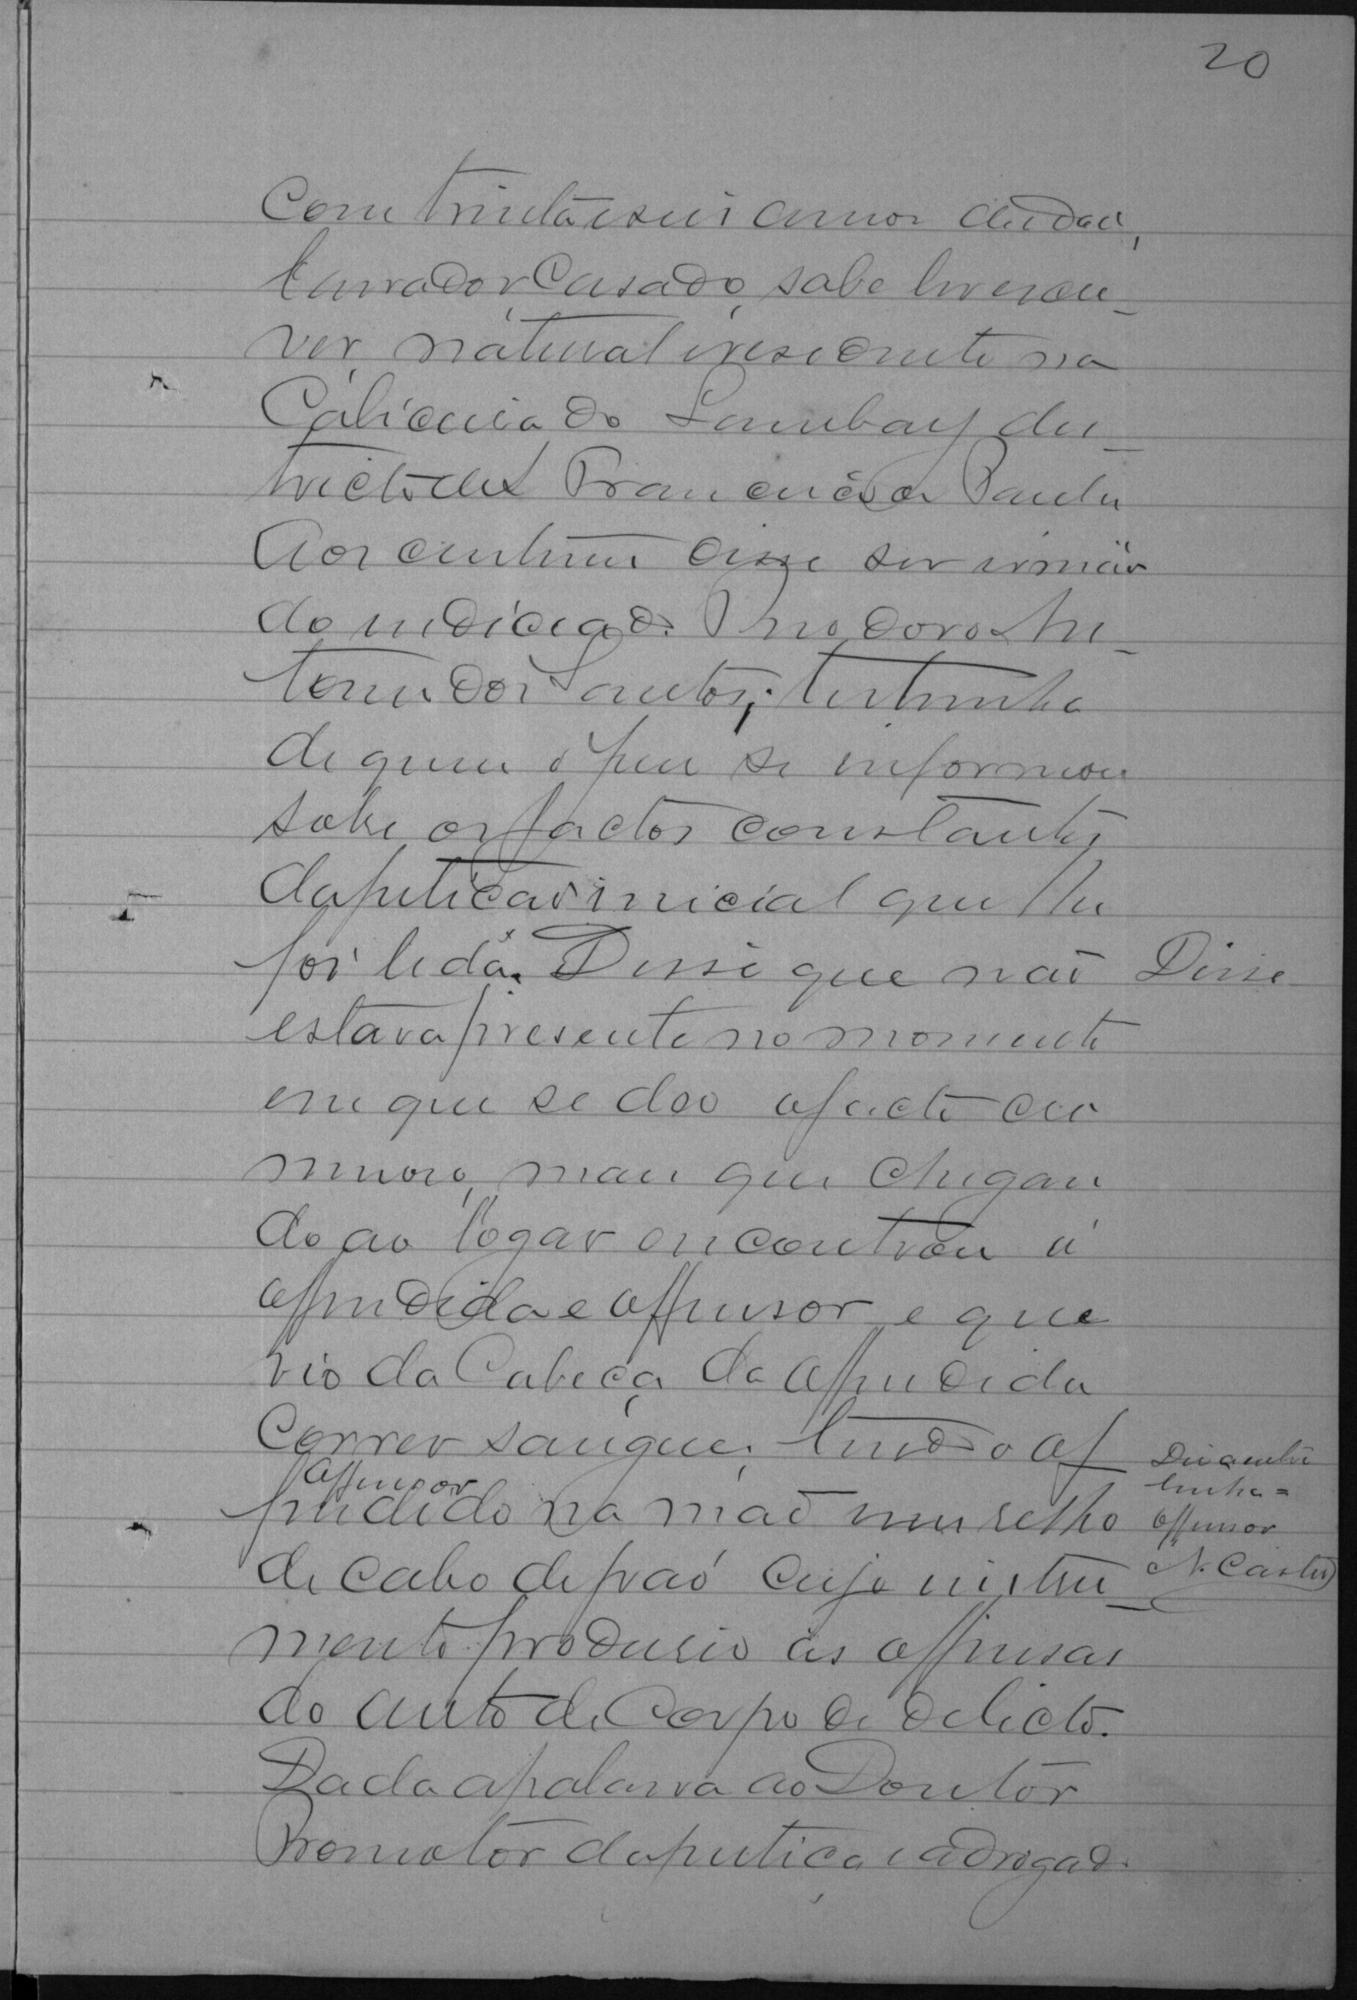 20
Com trinta e seis annos de idade,
lavrador, casado, sabe ler e escre-
ver, natural e residente na
Cabiceira do Lambary dis-
tricto de S Francisco de Paula
Aos custumes disse ser irmão
do indiciado Theodoro An-
tonio dos Santos; testemunha
de quem o juiz se informou
sobre os factos constantes
da petição inicial que lhe
foi lida. Disse que não Disse
estava presente no momento
em que se deo o facto cri
minoso, mas que chegan
do ao logar encontrou a
offendida e offensor e que
vio da Cabeça da offendida
correr sangue, tendo o of
offensor
fendido na mão um relho
de cabo de páo cujo instru-
mento produsio as offensas
do auto de Corpo de delicto.
Dada a palavra ao Doutor
Promotor da justiça e advogado
Diz a entre
linha =
offensor
N. Castro